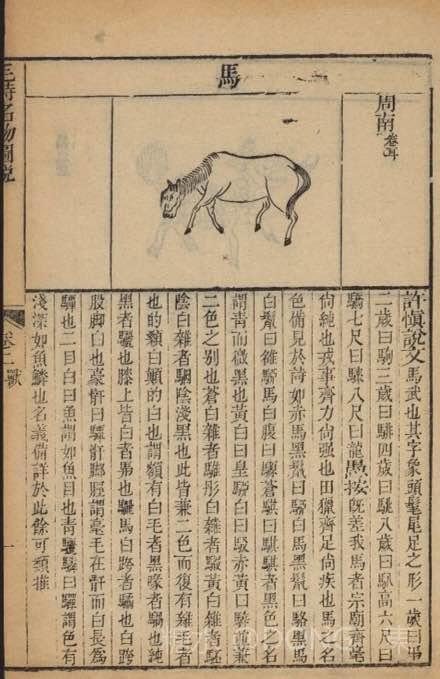 馬
周南 卷耳
許愼說文馬武也其字象頭髦尾足之形一歲曰
二歲曰駒三歲曰騑四歲曰駣八歲曰馭高六尺曰
驕七尺曰騋八尺曰龍愚按旣差我馬者宗廟齊毫
尙純也戎事齊力尙强也田獵齊足尙疾也馬之名
色備見於詩如赤馬黑鬛曰駵白馬黑鬛曰駱黑馬
白鬛曰雒駵馬白腹曰騵蒼騏曰騏騏者黑色之名
謂靑而微黑也黃白曰皇駵白曰駁赤黃曰騂黃兼
二色之别也蒼白雜者騅彤白雜者騢黃白雜者駓
陰白雜者駰陰淺黑也此皆兼二色而復有雜毛者
也的顙白顚的白也謂額有白毛者黑喙者騧也純
黑者驪也膝上皆白者馵也驪馬白跨者驈也白跨
股脚白也豪骭曰驔骭脚脛謂毫毛在骭而白長爲
驔也二目白曰魚謂如魚目也靑驪驎曰驒謂色有
淺深如魚鱗也名義備詳於此餘可類推
毛詩名物圖說
卷二 獸
一